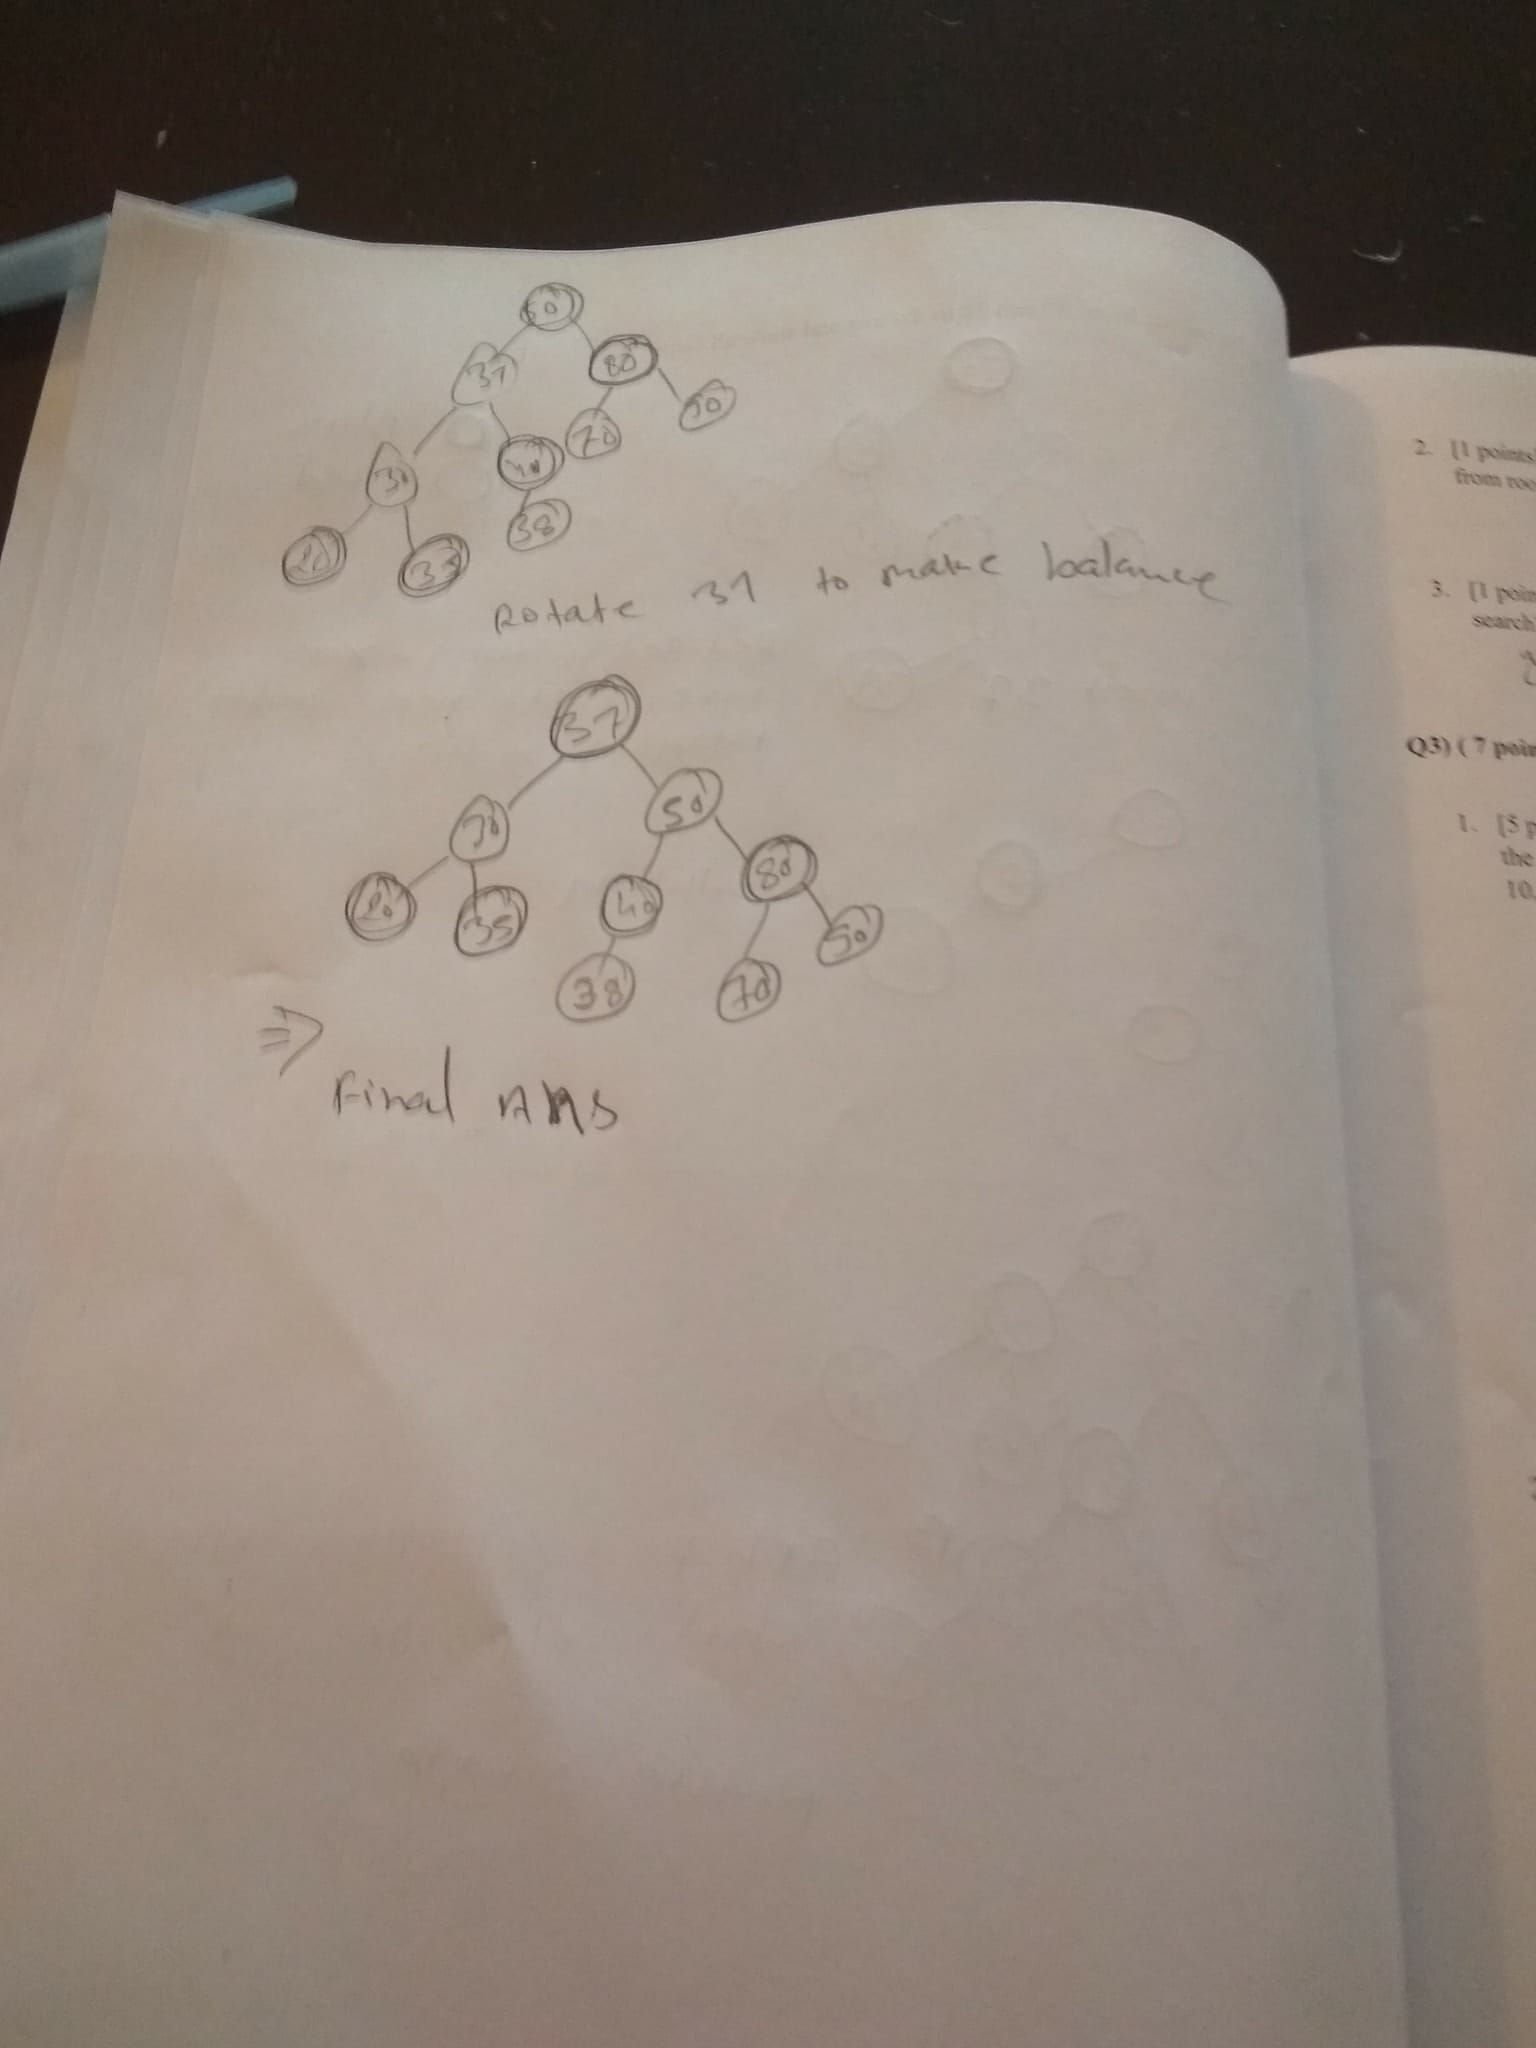 50
37
80
30
40
70
50
20
35
38
Rotate 37 to make balance
37
30
50
20
35
40
80
38
70
50
⇒
Final Ans
2. [1 points
from roo
3. [1 poin
search
Q3) ( 7 poin
1. [5 p
the
10,